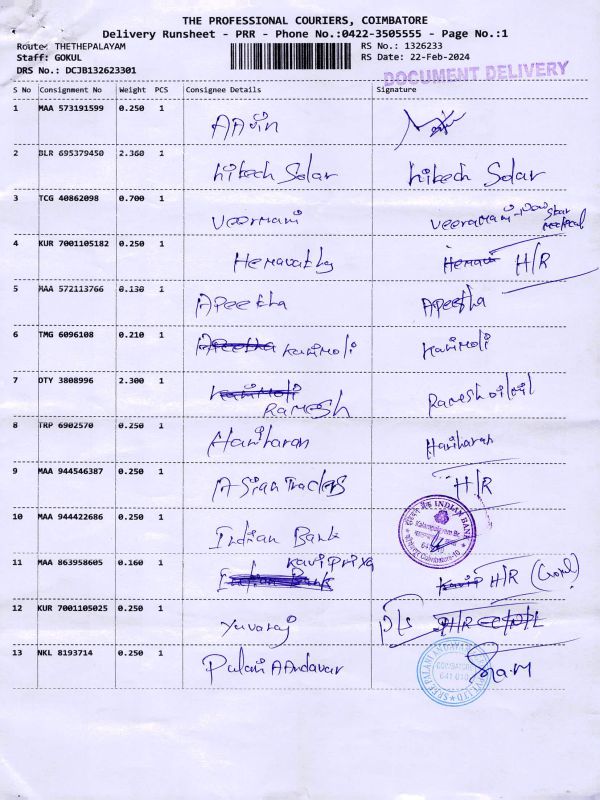 THE PROFESSIONAL COURIERS, COIMBATORE
Delivery Runsheet - PRR - Phone No.:0422-3505555 - Page No.:1
Route: THETHEPALAYAM
Staff: GOKUL
DRS No.: DCJB132623301
RS No.: 1326233
RS Date: 22-Feb-2024
DOCUMENT DELIVERY
S No Consignment No Weight PCS Consignee Details Signature
1 MAA 573191599 0.250 1 AAvin
2 BLR 695379450 2.360 1 hitech Solar hitech Solar
3 TCG 40862098 0.700 1 veermani veeramani star medical
4 KUR 7001105182 0.250 1 Hemavathy H/R
5 MAA 572113766 0.130 1 APeetha APeetha
6 TMG 6096108 0.210 1 APeetha kanimoli kanimoli
7 DTY 3808996 2.300 1 kanimoli RAMESH Ramesh
8 TRP 6902570 0.250 1 Hariharan Hariharan
9 MAA 944546387 0.250 1 ASian Traders H/R
10 MAA 944422686 0.250 1 Indian Bank
INDIAN BANK
11 MAA 863958605 0.160 1 Indian Bank kavipriya H/R
12 KUR 7001105025 0.250 1 Yuvaraj D/L
13 NKL 8193714 0.250 1 Palani AAndavar
COIMBATORE
641 010